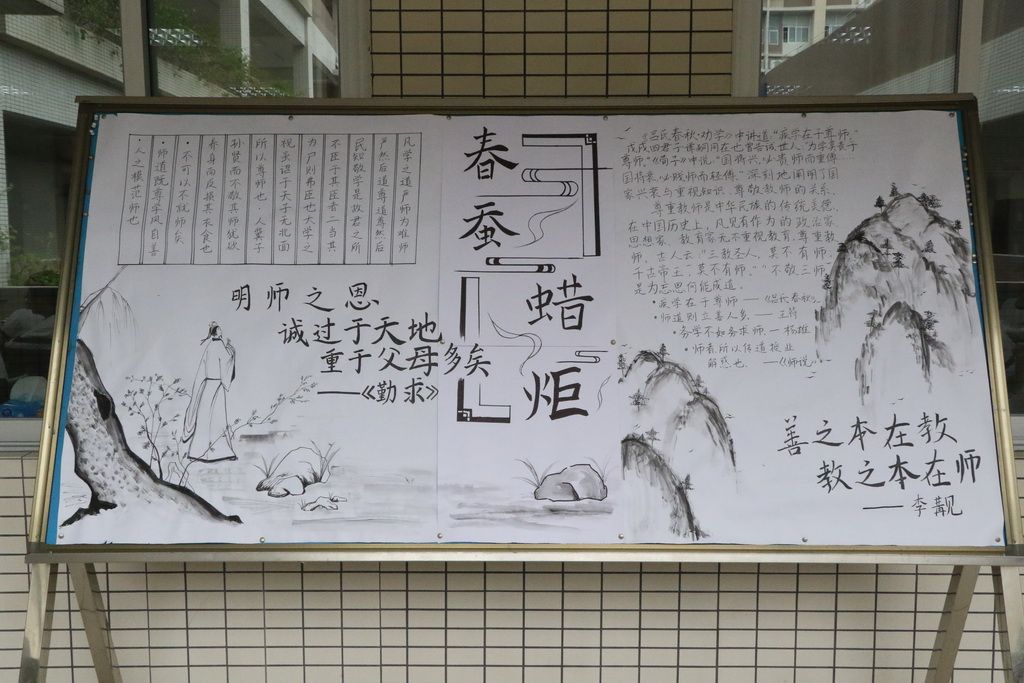 凡学之道严师为难师
严然后道尊道尊然后
民知敬学是故君之所
不臣于其臣者二当其
为尸则弗臣也大学之
礼虽诏于天子无北面
所以尊师也·人棠子
孙贤而不敬其师犹欲
养身而反损其衣食也
·不可以不就师矣
·师道既尊学风自善
·人之模范师也
明师之恩
诚过于天地
重于父母多矣
——《勤求》
春蚕
蜡炬
《吕氏春秋·劝学》中讲道:"疾学在于尊师。"
尊师。"《荀子》中说:"国将兴,必贵师而重傅……
国将衰,必贱师而轻傅。"深刻地阐明了国
家兴衰与重视知识、尊敬教师的关系。
尊重教师是中华民族的传统美德。
在中国历史上,凡见有作为的政治家、
思想家、教育家无不重视教育,尊重教
师。古人云:"三教圣人,莫不有师,
千古帝王,莫不有师。""不敬三师,
是为忘恩何能成道。"
·疾学在于尊师——《吕氏春秋》
·师道则立善人多——王符
·务学不如务求师。—杨雄
·师者,所以传道授业
解惑也。——《师说》
善之本在教
教之本在师
——李覯